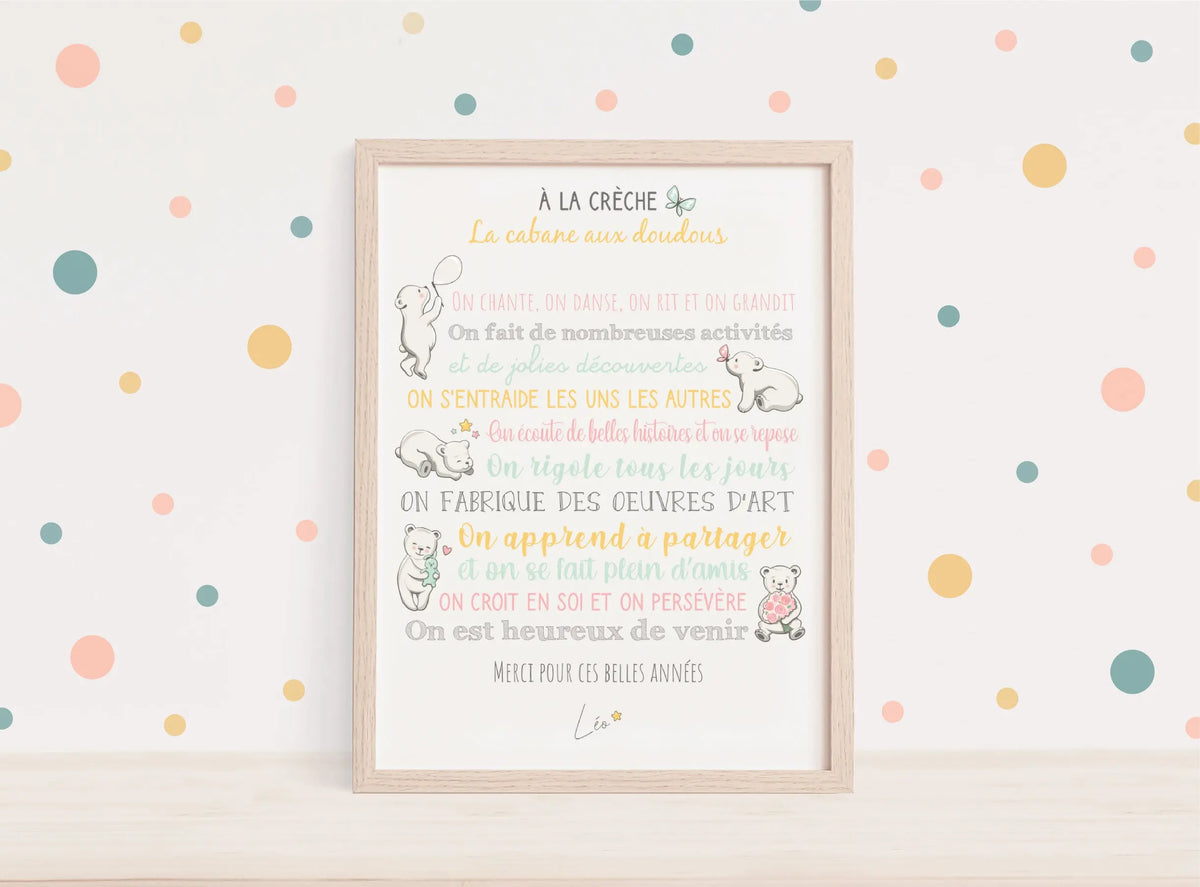 À LA CRÈCHE
La cabane aux doudous
ON CHANTE, ON DANSE, ON RIT ET ON GRANDIT
On fait de nombreuses activités
et de jolies découvertes
ON S'ENTRAIDE LES UNS LES AUTRES
On écoute de belles histoires et on se repose
On rigole tous les jours
ON FABRIQUE DES OEUVRES D'ART
On apprend à partager
et on se fait plein d'amis
ON CROIT EN SOI ET ON PERSÉVÈRE
On est heureux de venir
MERCI POUR CES BELLES ANNÉES
Léo